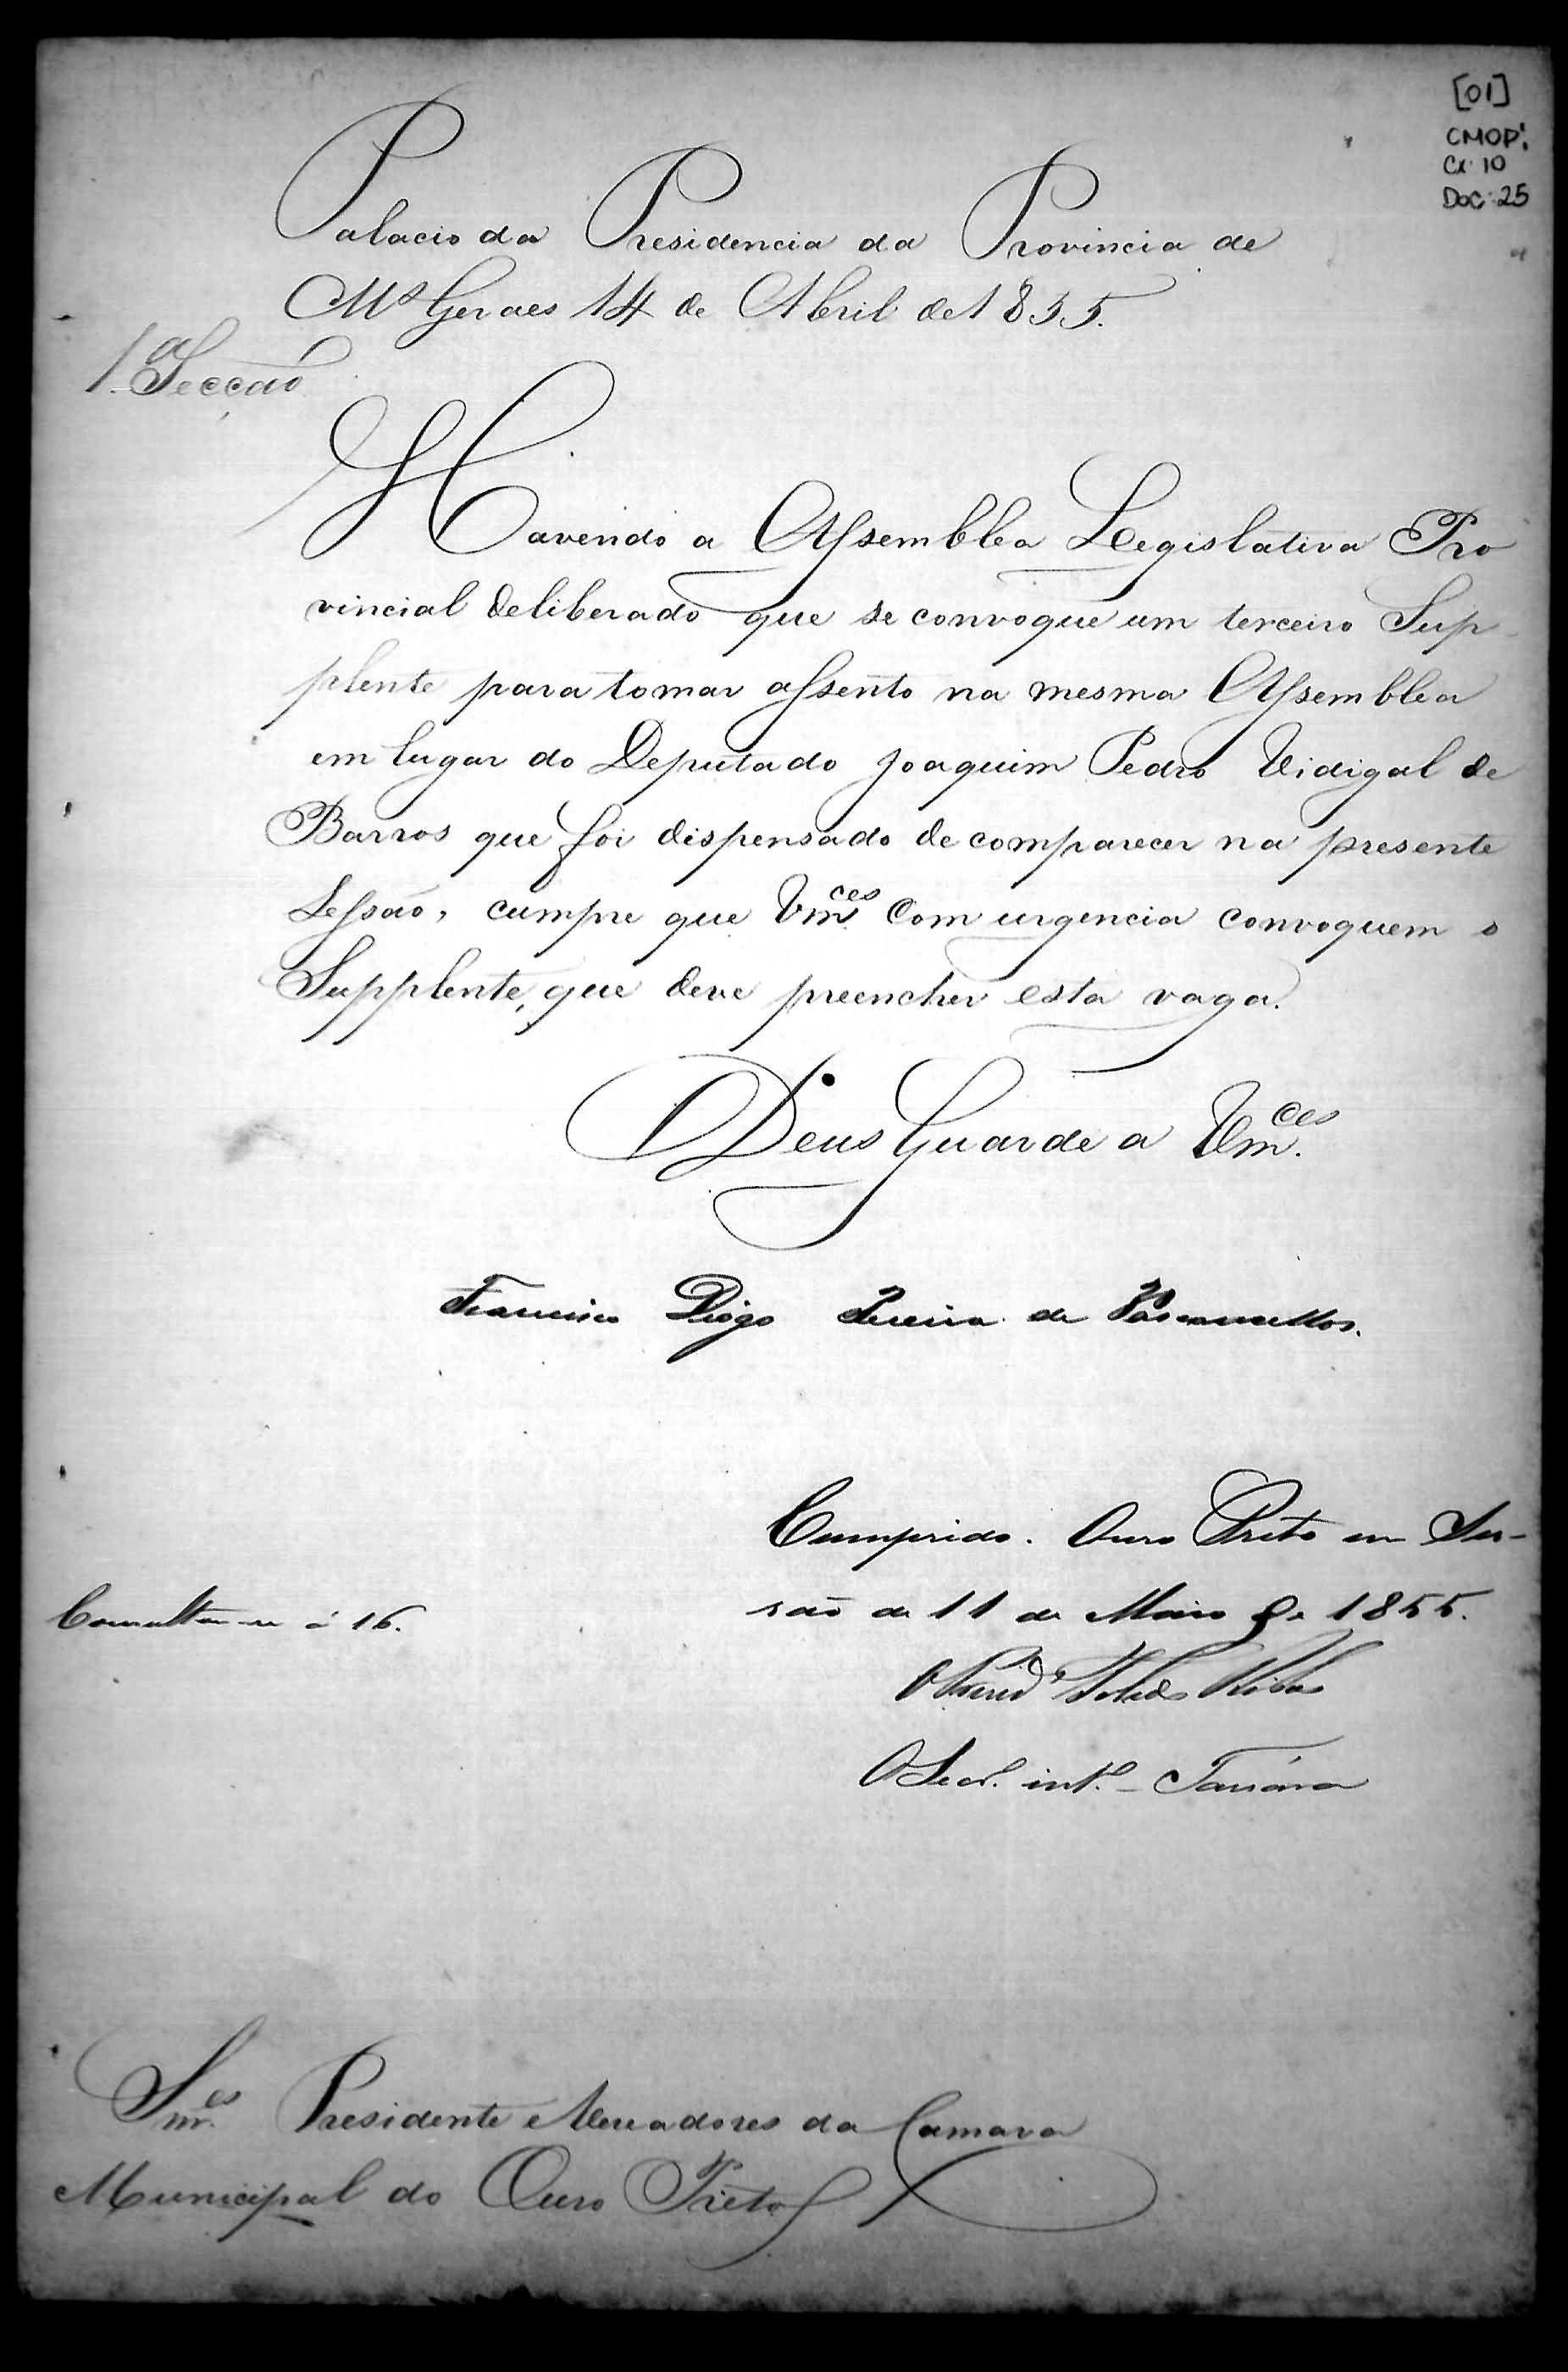 [01]
CMOP:
Cx: 10
Doc: 25
Palacio da Presidencia da Provincia de
Ms Geraes 14 de Abril de 1855.
1.a Secção
Havendo a Assemblea Legislativa Pro
vincial deliberado que se convoque um terceiro Sup-
plente para tomar assento na mesma Assemblea
em lugar do Deputado Joaquim Pedro Vidigal de
Barros que foi dispensado de comparecer na presente
Sessão, cumpre que Vm.ces com urgencia convoquem o
Supplente, que deve preencher esta vaga.
Deus Guarde a Vm.ces
Francisco Diogo Pereira de Vasconcellos.
Cumprido. Ouro Preto em Ses-
são de 11 de Maio de 1855.
á 16.
O Presid.
O Secr. int.º -
Snr.es Presidente e Vereadores da Camara
Municipal do Ouro Preto